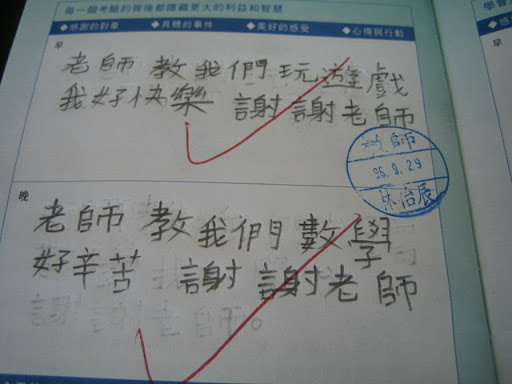 每一個考驗的背後都隱藏更大的利益和智慧
◆感謝的對象 ◆具體的事件 ◆美好的感受 ◆心得與行動
早
老師 教我們玩遊戲
我好快樂 謝謝老師
教師
96.9.29
林治辰
晚
老師 教我們數學
好辛苦 謝謝老師